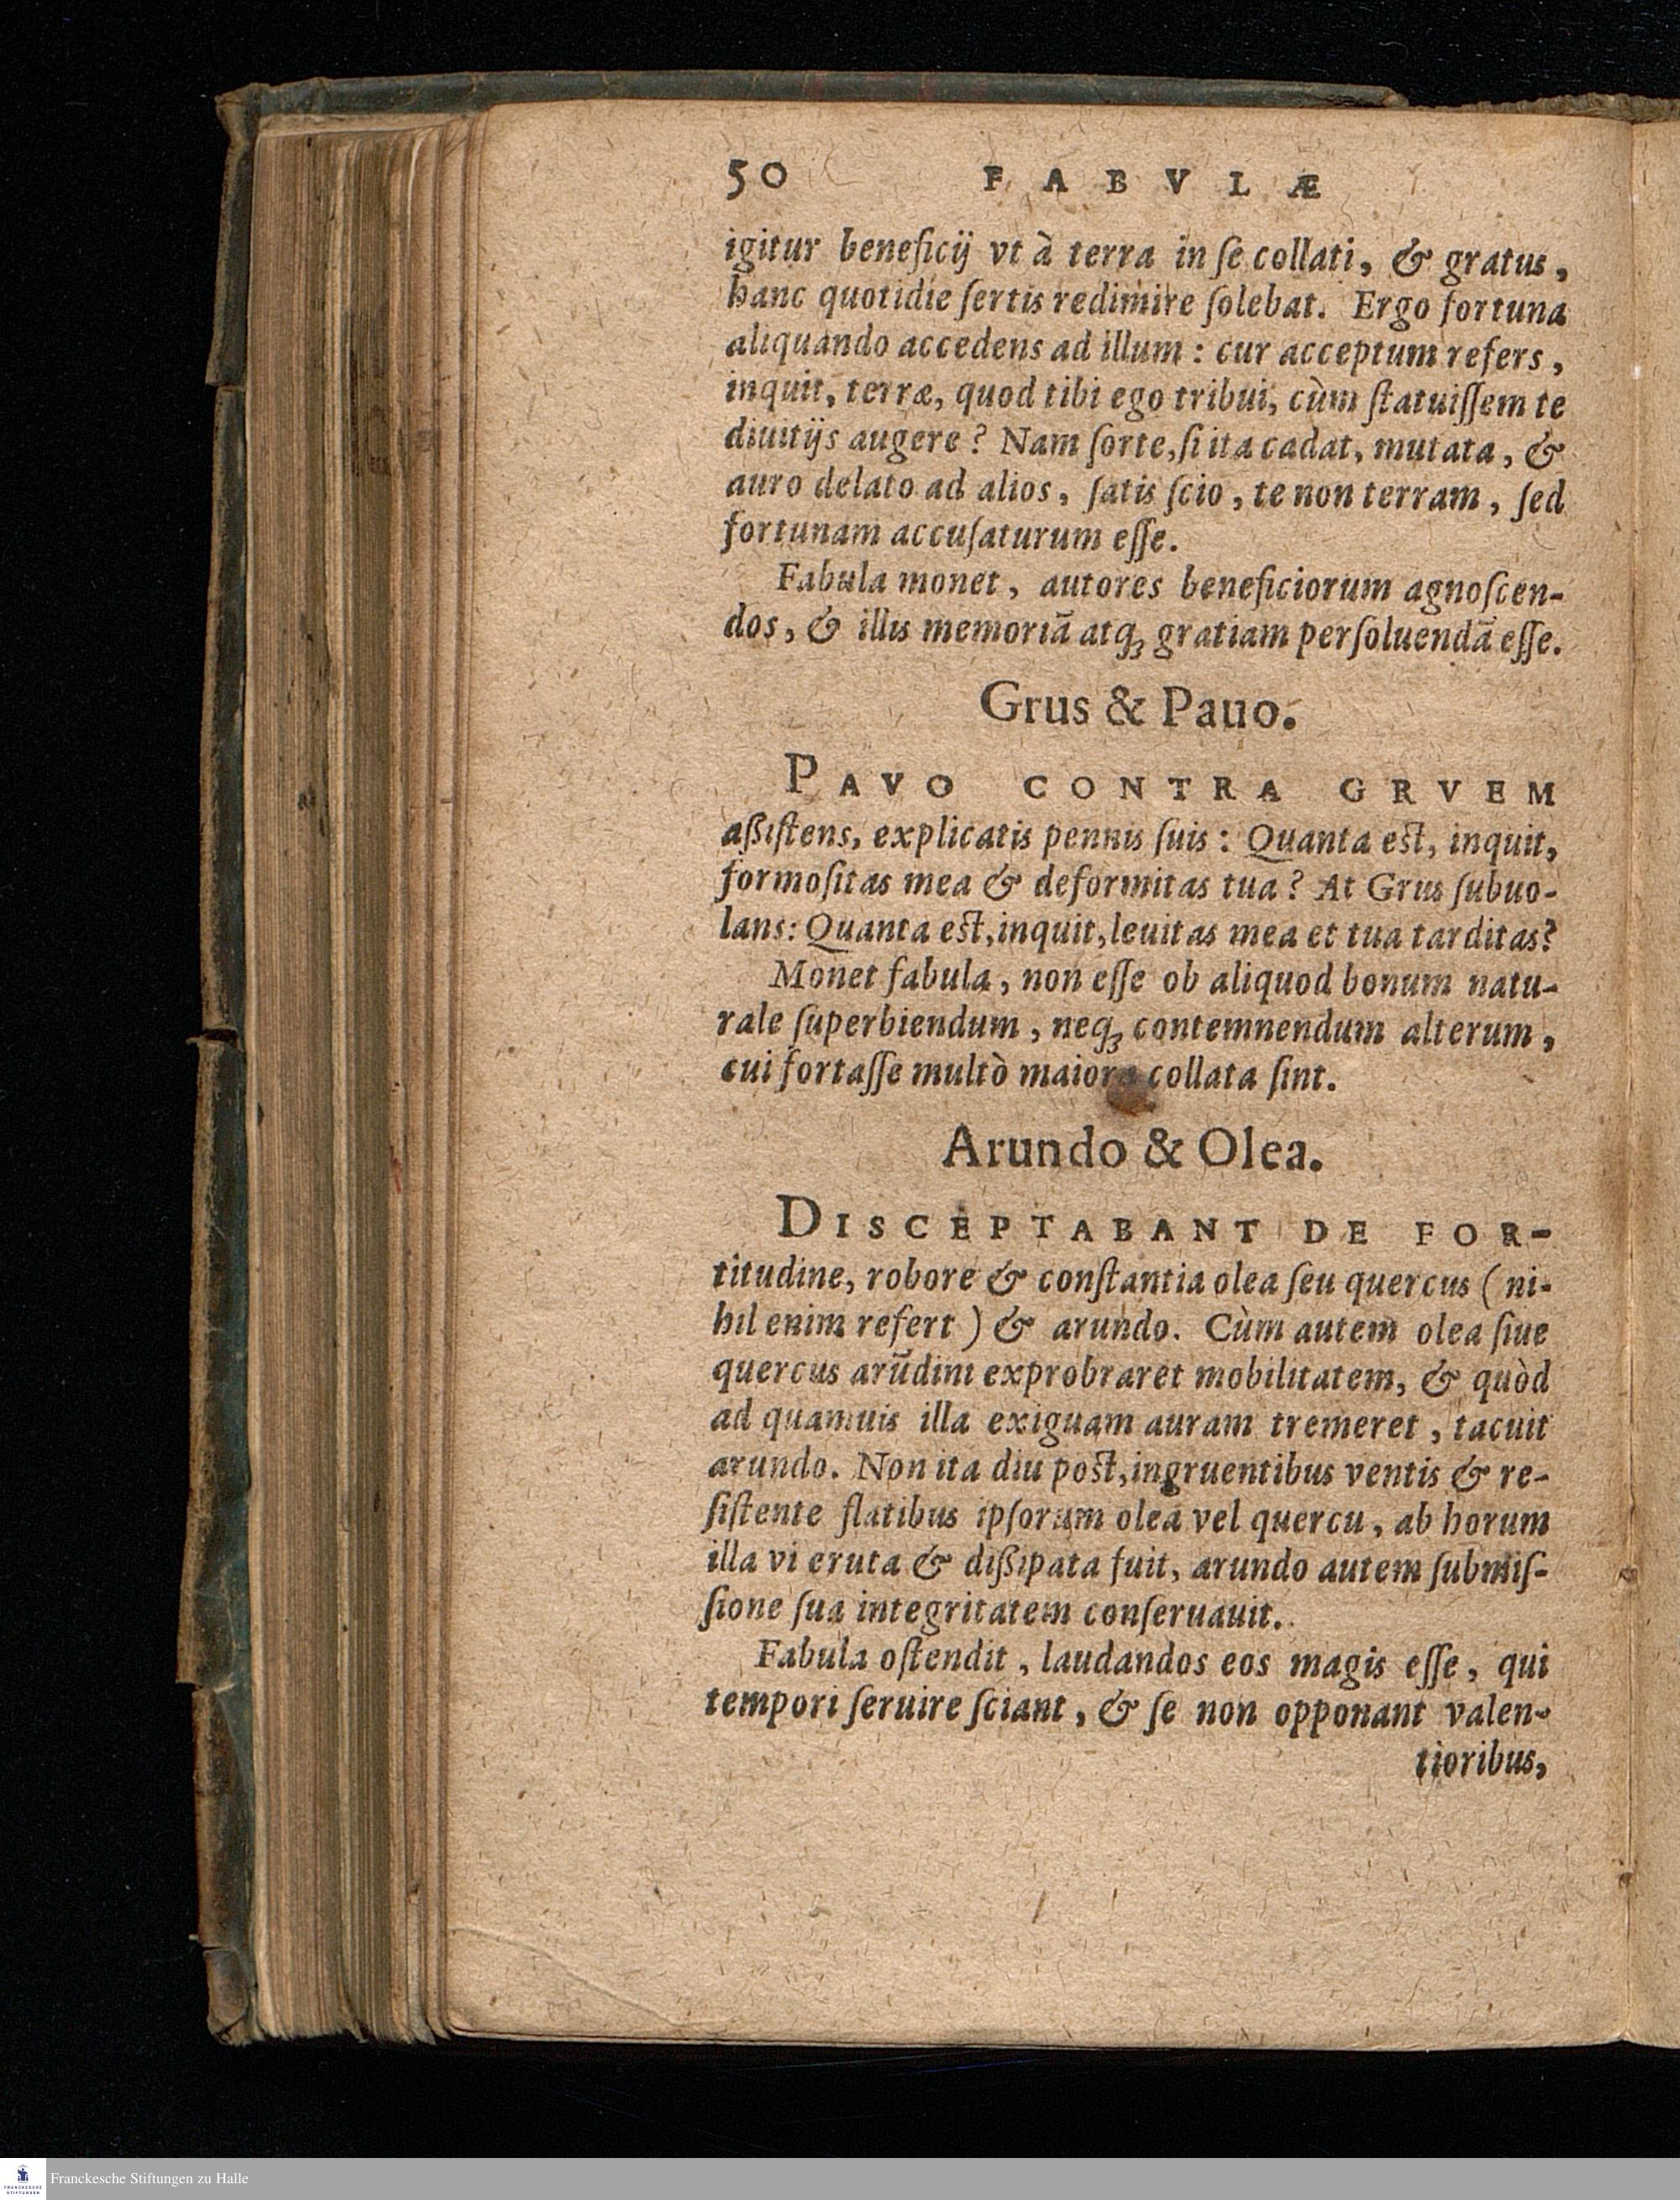 50 FABVLÆ
igitur beneficij vt à terra in ſe collati, & gratus,
hanc quotidie ſertis redimire ſolebat. Ergo fortuna
aliquando accedens ad illum : cur acceptum refers,
inquit, terræ, quod tibi ego tribui, cùm ſtatuiſſem te
diuitijs augere? Nam ſorte, ſi ita cadat, mutata, &
auro delato ad alios, ſatis ſcio, te non terram, ſed
fortunam accuſaturum eſſe.
Fabula monet, autores beneficiorum agnoſcen-
dos, & illis memoriā atqꝫ gratiam perſoluendā eſſe.
Grus & Pauo.
PAVO CONTRA GRVEM
aßiſtens, explicatis pennis ſuis : Quanta eſt, inquit,
formoſitas mea & deformitas tua? At Grus ſubuo-
lans: Quanta eſt, inquit, leuitas mea et tua tarditas?
Monet fabula, non eſſe ob aliquod bonum natu-
rale ſuperbiendum, neqꝫ contemnendum alterum,
cui fortaſſe multò maiora collata ſint.
Arundo & Olea.
DISCEPTABANT DE FOR-
titudine, robore & conſtantia olea ſeu quercus (ni-
hil enim refert) & arundo. Cùm autem olea ſiue
quercus arūdini exprobraret mobilitatem, & quòd
ad quamuis illa exiguam auram tremeret, tacuit
arundo. Non ita diu poſt, ingruentibus ventis & re-
ſiſtente flatibus ipſorum olea vel quercu, ab horum
illa vi eruta & dißipata fuit, arundo autem ſubmiſ-
ſione ſua integritatem conſeruauit.
Fabula oſtendit, laudandos eos magis eſſe, qui
tempori ſeruire ſciant, & ſe non opponant valen-
tioribus,
Franckesche Stiftungen zu Halle
FRANCKESCHE
STIFTUNGEN